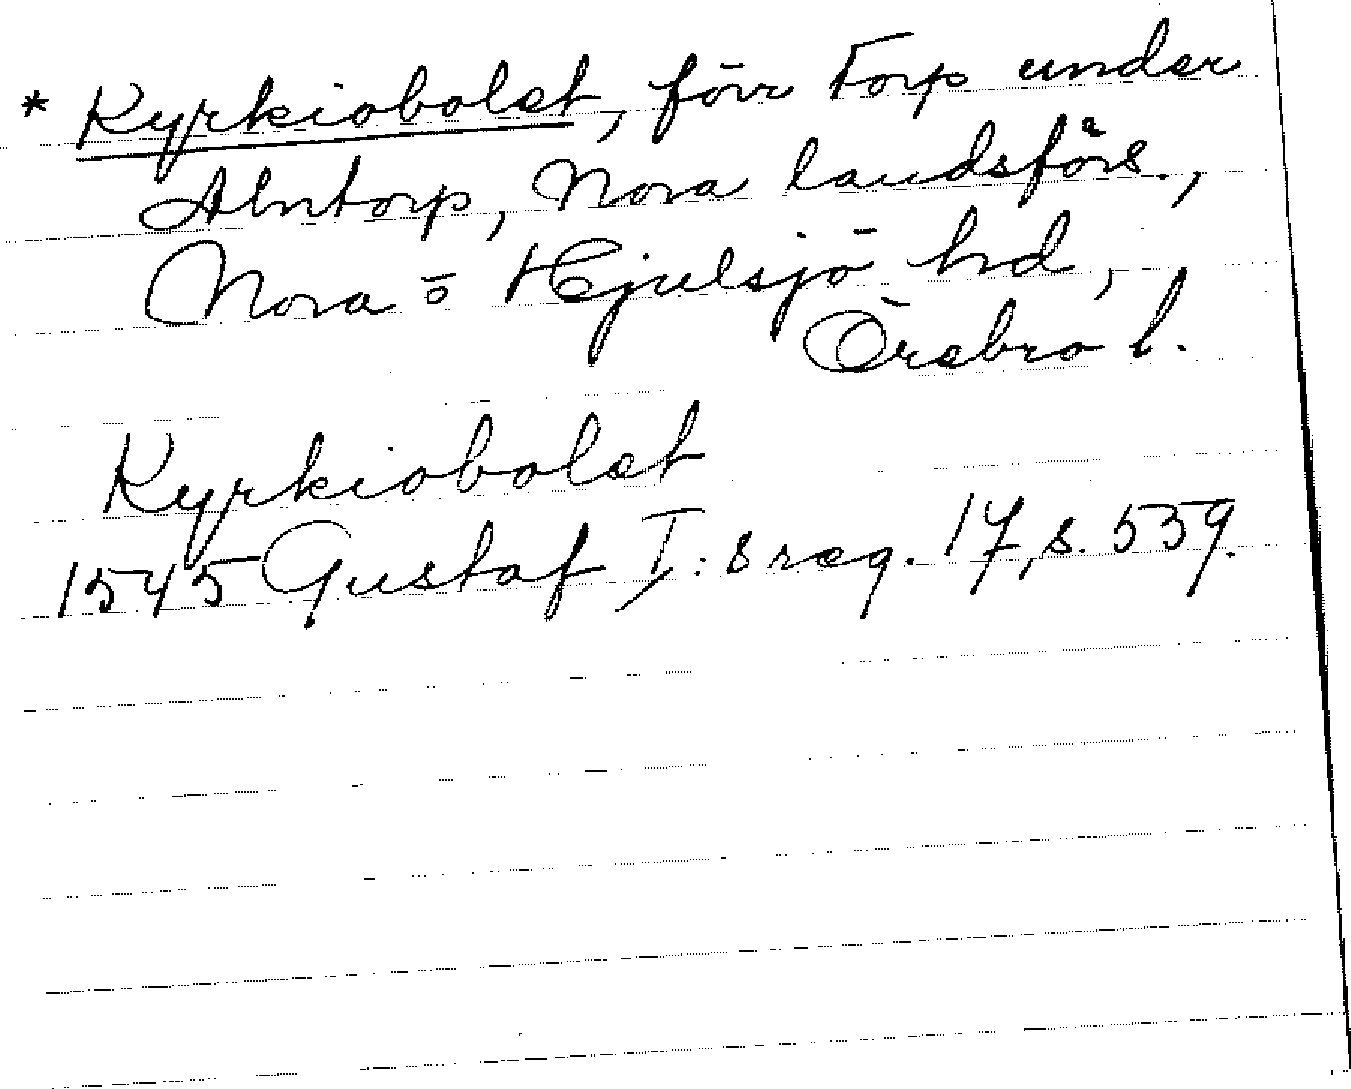 * Kyrkiobolet, förr Torp under
Alntorp, Nora landsförs.,
Nora o Hjulsjö hd,
Örebro l.
Kyrkiobolet
1545 Gustaf I:s reg. 17, s. 539.